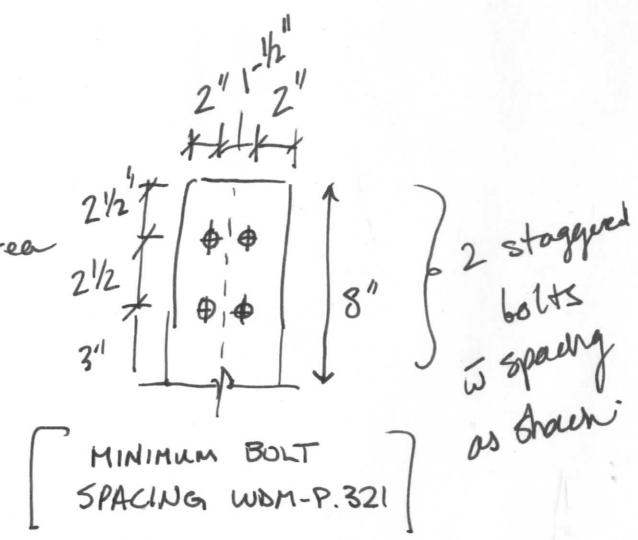 2" 1-1/2" 2"
2 1/2"
2 1/2
3"
8"
2 staggered
bolts
w̄ spacing
as shown.
MINIMUM BOLT
SPACING WDM-P.321